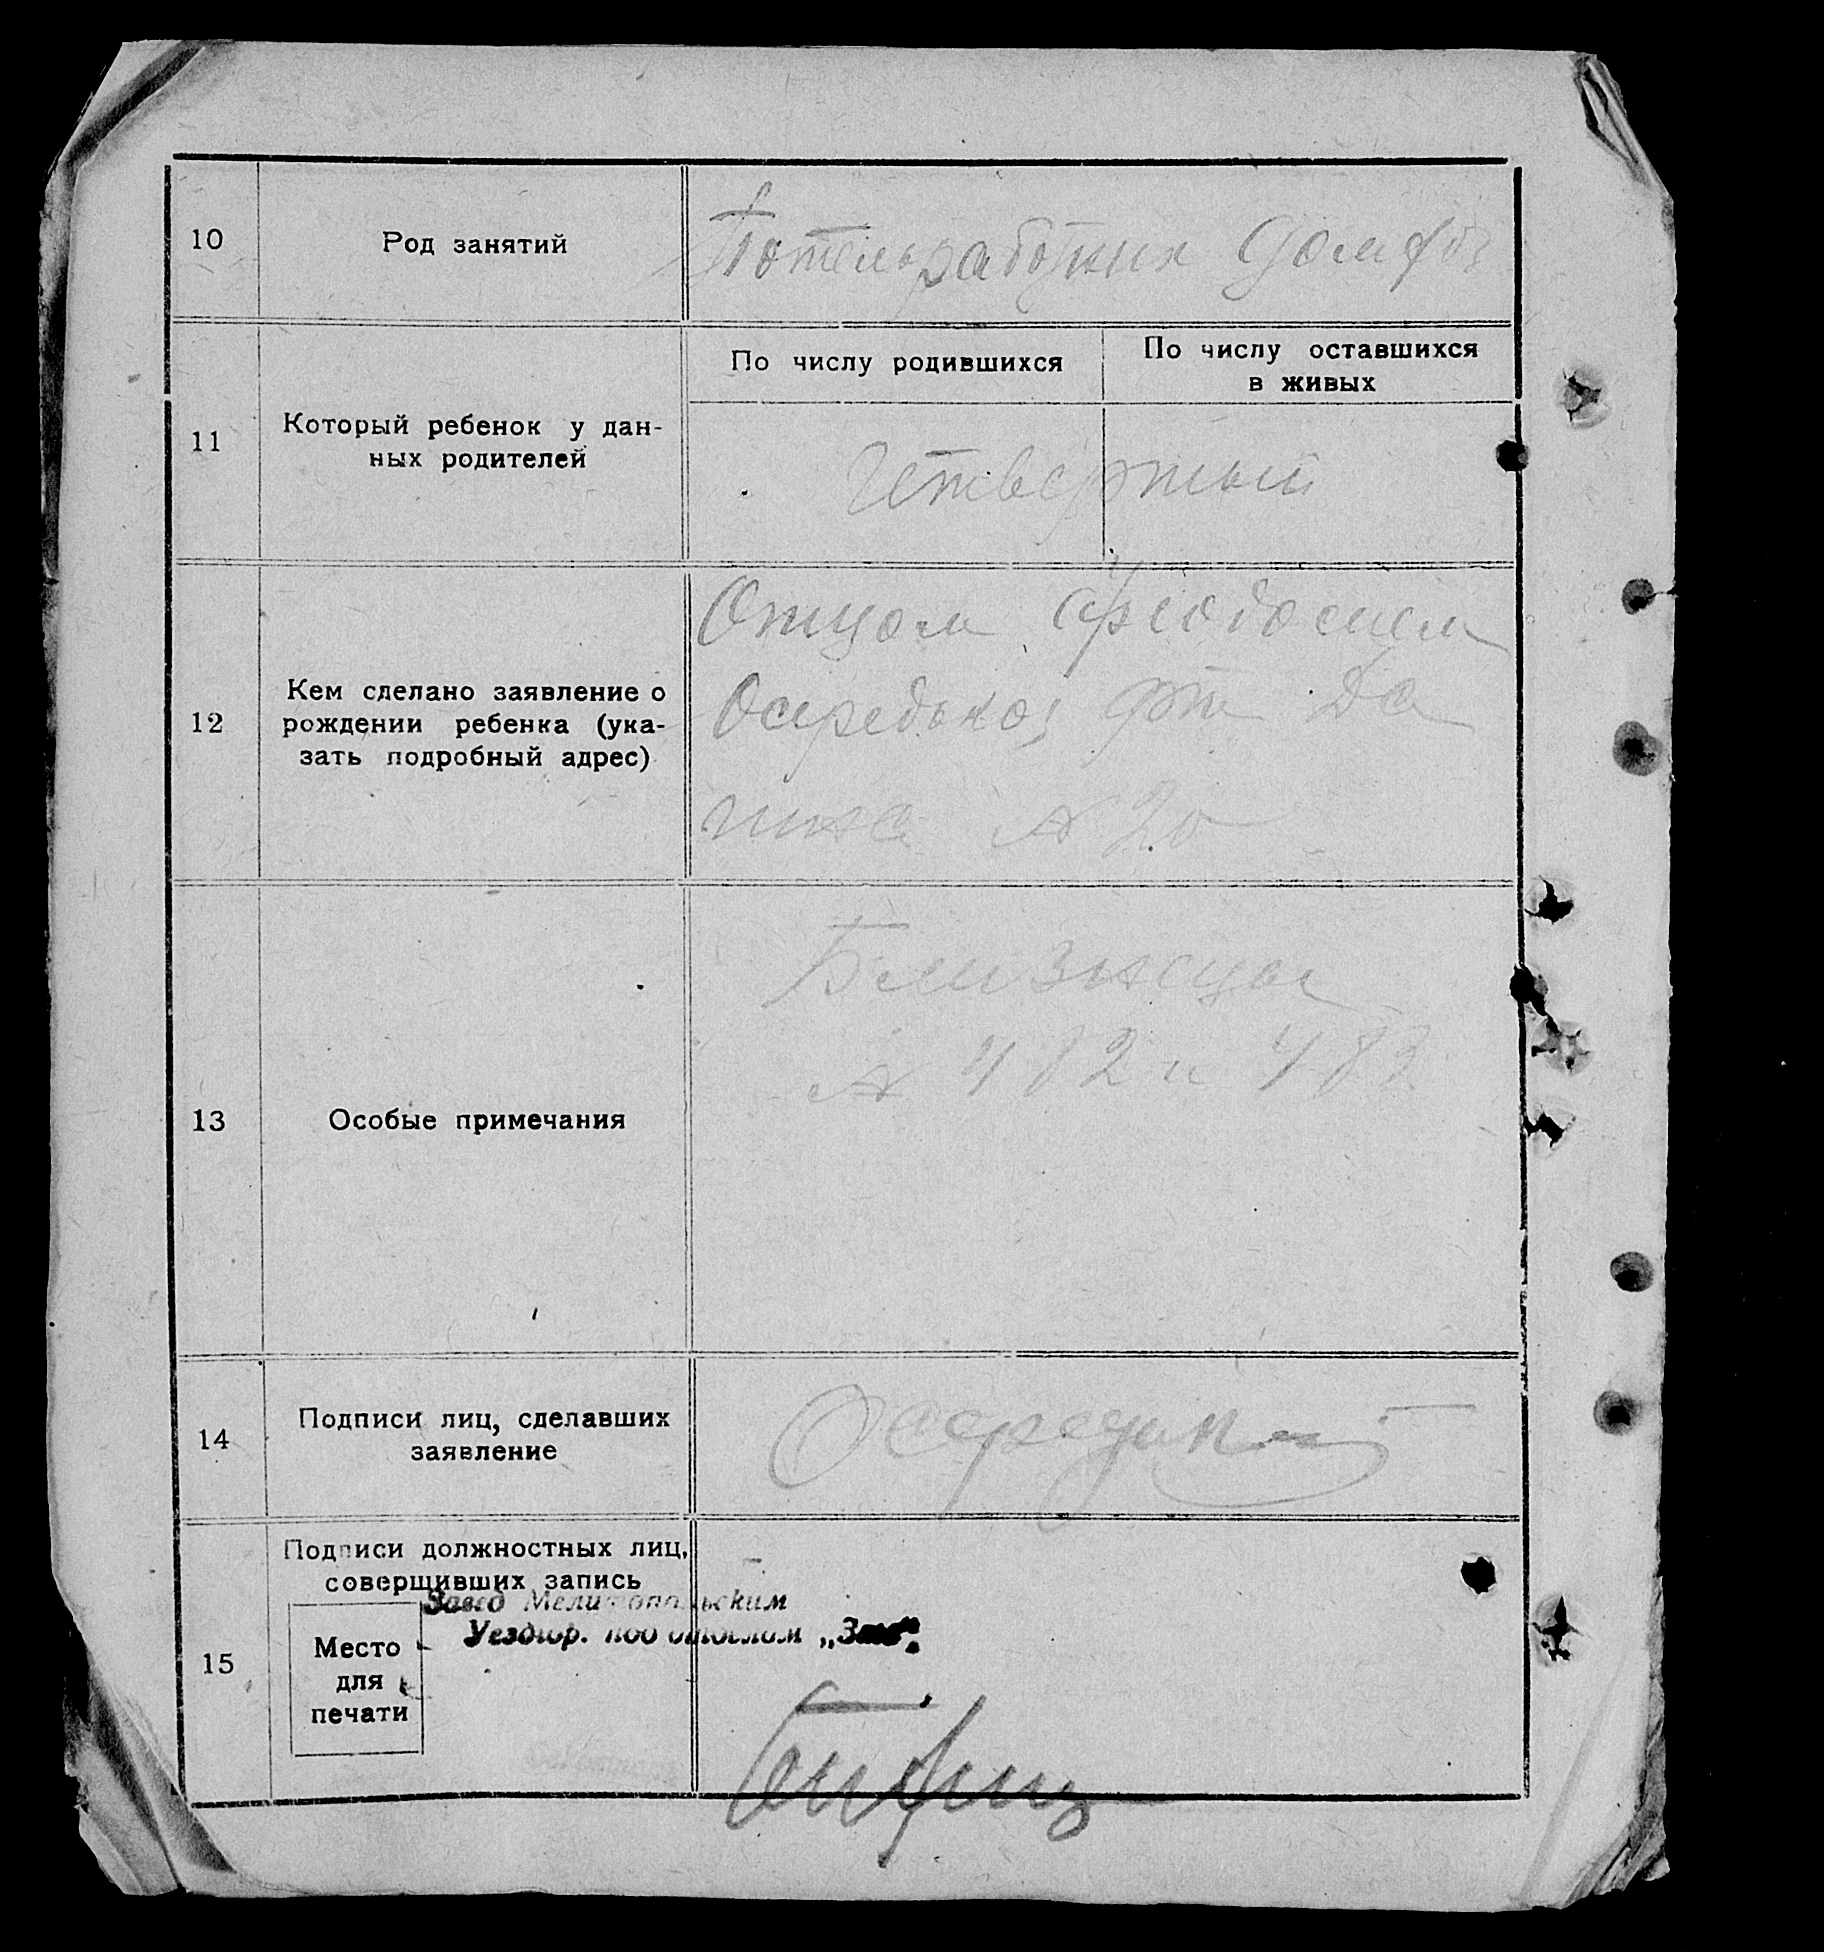 10
Род занятий
11
Который ребенок у дан-
ных родителей
По числу родившихся
По числу оставшихся
в живых
Четвертый
12
Кем сделано заявление о
рождении ребенка (ука-
зать подробный адрес)
Отцом Феодосием
№ 20
13
Особые примечания
Близнецы
№ 482 и 483
14
Подписи лиц, сделавших
заявление
15
Подписи должностных лиц,
совершивших запись
Место
для
печати
Завед Мелитопольским
Уездгор. подотделом „Загс“.